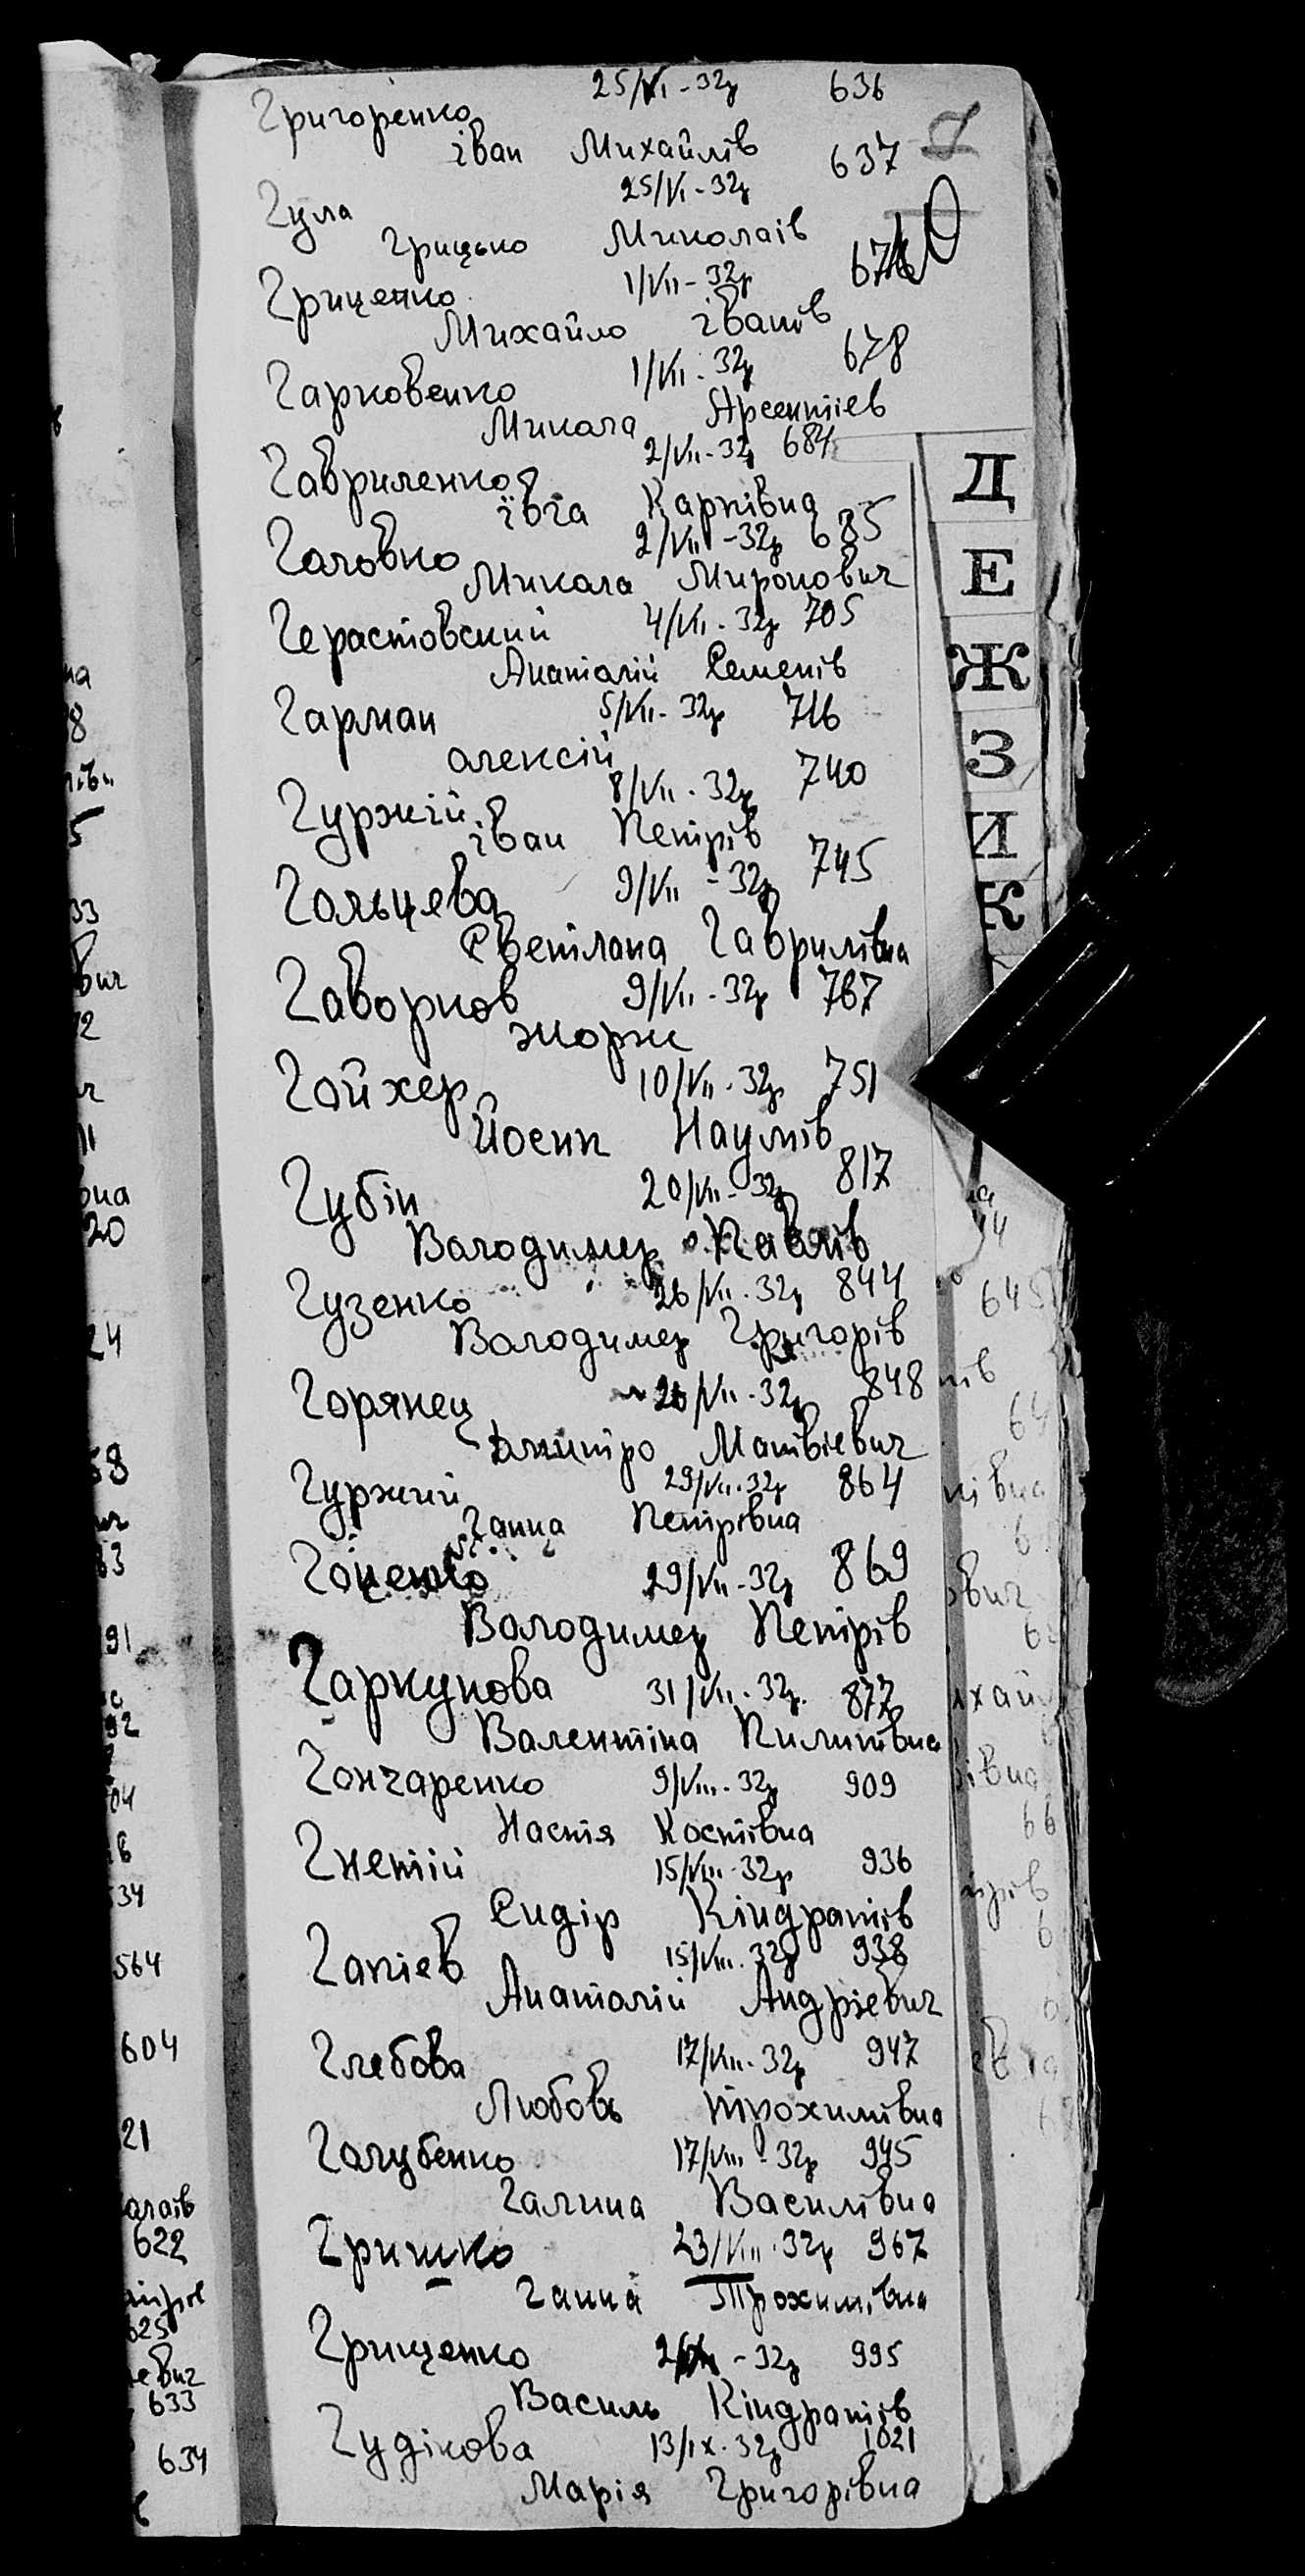 Григоренко 25/VI-32р 636
іван Михайлів 637
Гула 25/VI-32р
Грицько Миколаів
Гриценко 1/VII-32р
Михайло іванів
Гарковенко 1/VII-32р 678
Микола Арсентіев
Гавриленко 2/VII-32р 684
івга Карпівна
Головко 2/VII-32р 685
Микола Миронович
Герастовский 4/VII-32р 705
Анатолій Семенів
Гарман 5/VII-32р 716
олексій
Гуржій 8/VII-32р 740
іван Петрів
Гольцева 9/VII-32р 745
Светлана Гаврилівна
Гаворков 9/VII-32р 767
Жорж
Гойхер 10/VII-32р 751
Йосип Наумів
Губін 20/VII-32р 817
Володимер Павлів
Гузенко 26/VII-32р 844
Володимер Григорів
Горянец 26/VII-32р 848
Дмитро Матвіевич
Гуржий 29/VII-32р 864
Ганна Петрівна
Гоценко 29/VII-32р 869
Володимер Петрів
Гаркунова 31/VII-32р. 877
Валентіна Пилипівна
Гончаренко 9/VIII-32р 909
Настя Костівна
Гнетій 15/VIII-32р 936
Сидір Кіндратів
Гапіев 15/VIII-32р 938
Анатолій Андріевич
Глебова 17/VIII-32р 947
Любовь Трохимівна
Голубенко 17/VIII-32р 945
Галина Василівна
Гришко 23/VIII-32р 967
Ганна Трохимівна
Грищенко -32р 995
Василь Кіндратів
Гудікова 13/IX-32р 1021
Марія Григорівна
Д
Е
Ж
З
И
К
24
91
564
604
21
622
625
633
634